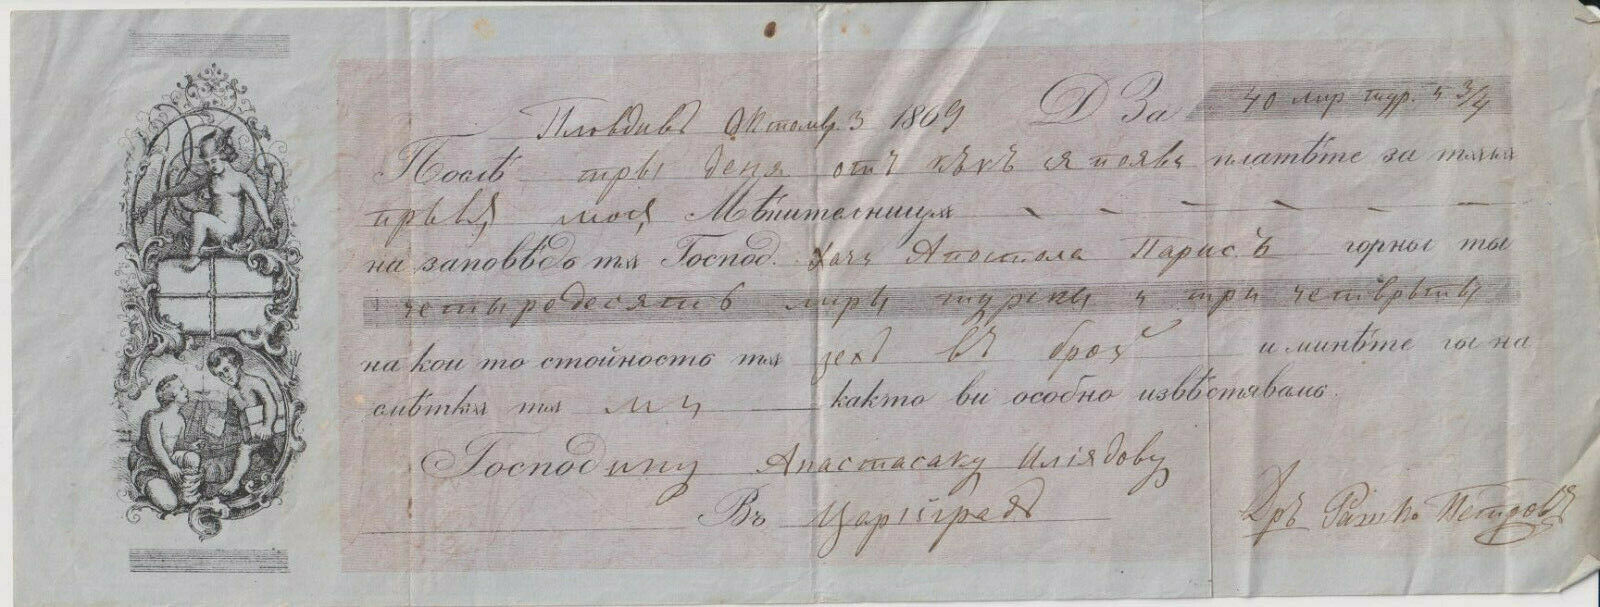 Пловдивъ Октомвр. 3 1869 Д За 40 лир. тур. и 3/4
Послѣ три деня отъ какъ ся появи платѣте за тѫзи
првѫ моѭ Мѣнителницѫ
на заповѣдь тѫ Господ. Хачи Апостола Парисъ горны ты
четыредесять лиры турски и три четврьты
на кои то стойность тѫ зехъ въ брой и минѣте гы на
смѣткѫ тѫ му както ви особно извѣстявамъ.
Господину Анастасаку Илиядову
Въ Цариградъ Дръ Рашко Петровъ